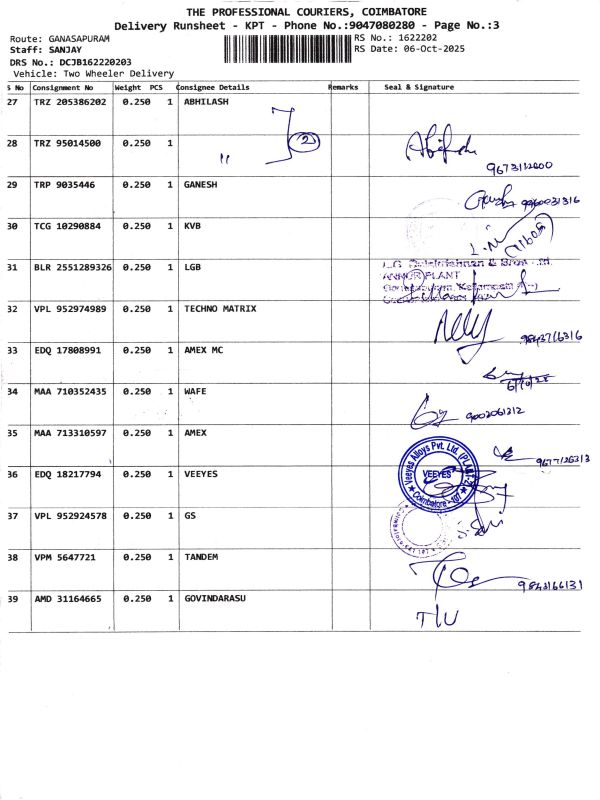 THE PROFESSIONAL COURIERS, COIMBATORE
Delivery Runsheet - KPT - Phone No.:9047080280 - Page No.:3
Route: GANASAPURAM RS No.: 1622202
Staff: SANJAY RS Date: 06-Oct-2025
DRS No.: DCJB162220203
Vehicle: Two Wheeler Delivery
S No Consignment No Weight PCS Consignee Details Remarks Seal & Signature
27 TRZ 205386202 0.250 1 ABHILASH
28 TRZ 95014500 0.250 1 " 2
9673112600
29 TRP 9035446 0.250 1 GANESH
30 TCG 10290884 0.250 1 KVB
31 BLR 2551289326 0.250 1 LGB
ANNUR PLANT
32 VPL 952974989 0.250 1 TECHNO MATRIX
33 EDQ 17808991 0.250 1 AMEX MC
6/10/25
34 MAA 710352435 0.250 1 WAFE
9002061212
35 MAA 713310597 0.250 1 AMEX
9677126313
36 EDQ 18217794 0.250 1 VEEYES
Veeyes Alloys Pvt. Ltd. (PLANT-2)
VEEYES
Coimbatore
37 VPL 952924578 0.250 1 GS
38 VPM 5647721 0.250 1 TANDEM
9843166131
39 AMD 31164665 0.250 1 GOVINDARASU